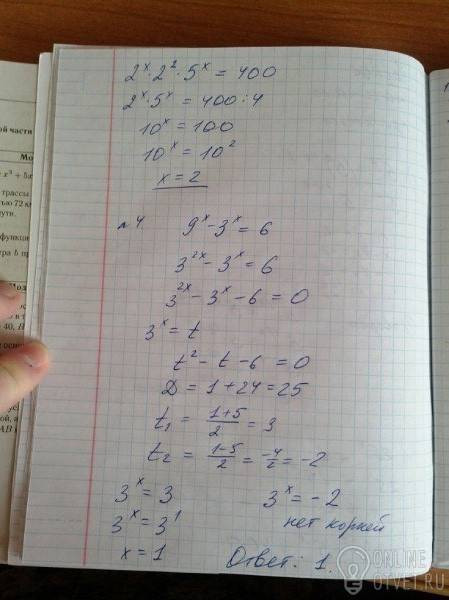 2ˣ·2²·5ˣ = 400
2ˣ·5ˣ = 400:4
10ˣ = 100
10ˣ = 10²
x = 2
№4. 9ˣ - 3ˣ = 6
3²ˣ - 3ˣ = 6
3²ˣ - 3ˣ - 6 = 0
3ˣ = t
t² - t - 6 = 0
D = 1 + 24 = 25
t₁ = (1+5)/2 = 3
t₂ = (1-5)/2 = -4/2 = -2
3ˣ = 3 3ˣ = -2
3ˣ = 3¹ нет корней
x = 1 Ответ: 1.
ой части
Мо
x³ + 5x
трассы
72 к
пути.
функци
тра b п
Мод
40, H
осн
AB
ONLINE
OTVET.RU